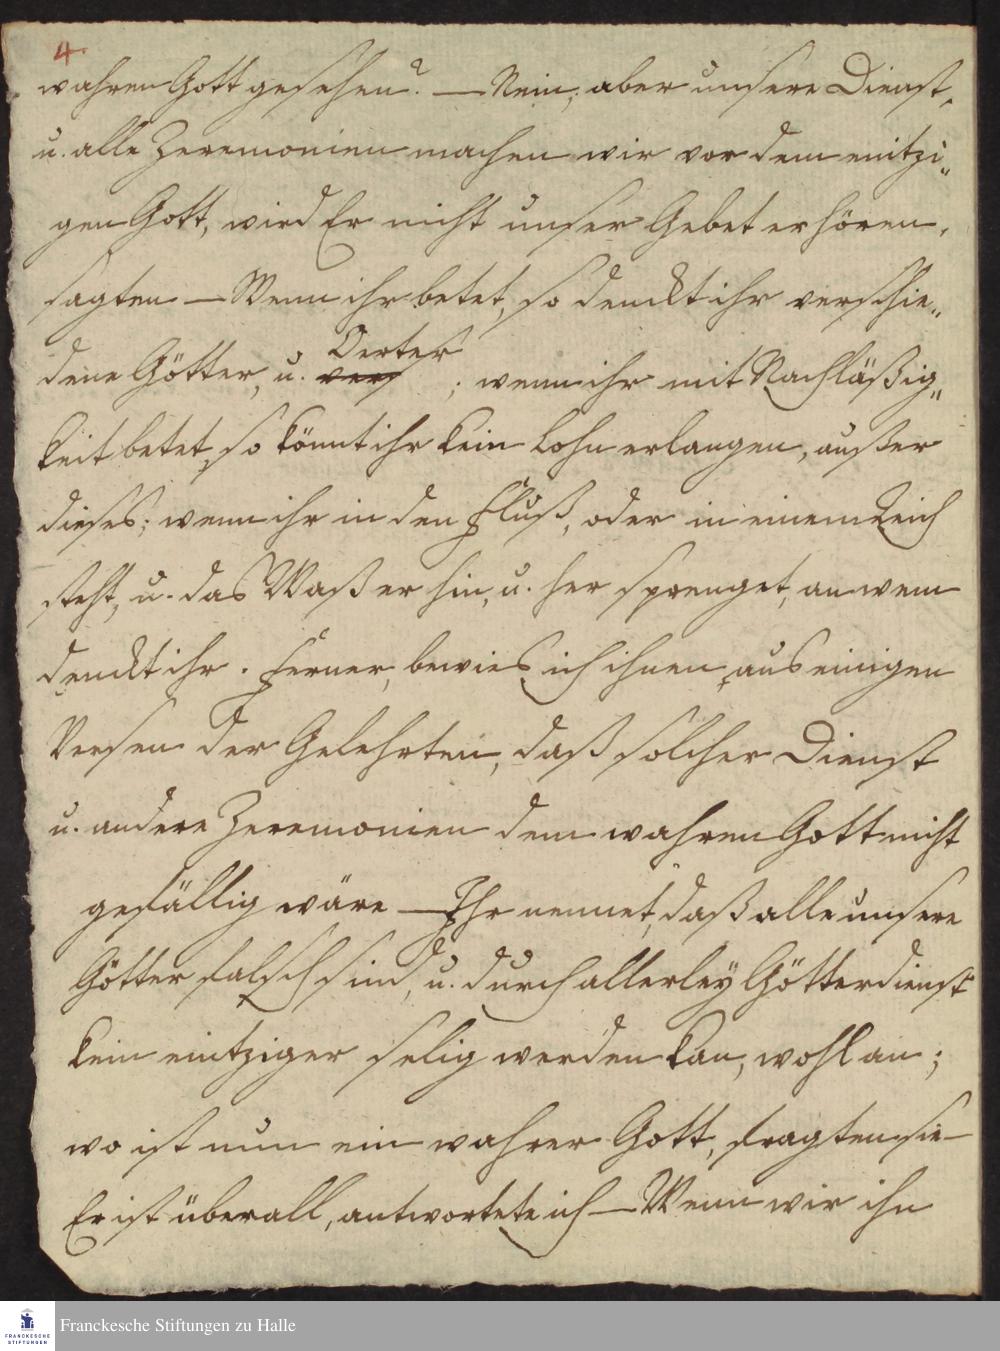 4.
wahren Gott gesehen? — Nein; aber unsere Dienst,
u. alle Zeremonien machen wir vor dem eintzi„
gen Gott, wird Er nicht unser Gebet erhören,
sagten — Wenn ihr betet, so denckt ihr verschie„
Oerter
dene Götter, u. vers ; wenn ihr mit Nachläßig„
keit betet, so könnt ihr kein Lohn erlangen, außer
dieses; wenn ihr in den Fluß, oder in einem Teich
steht, u. das Waßer hin, u. her sprenget, an wem
denckt ihr. Ferner, bewies ich ihnen, aus einigen
Versen der Gelehrten, daß solcher Dienst
u. andere Zeremonien dem wahren Gott nicht
gefällig wäre — Ihr nennet, daß alle unsere
Götter falsch sind, u. durch allerley Götterdienst
kein eintziger selig werden kan, wohl an;
wo ist nun ein wahrer Gott, fragten sie —
Er ist überall, antwortete ich — Wenn wir ihn
Franckesche Stiftungen zu Halle
FRANCKESCHE
STIFTUNGEN